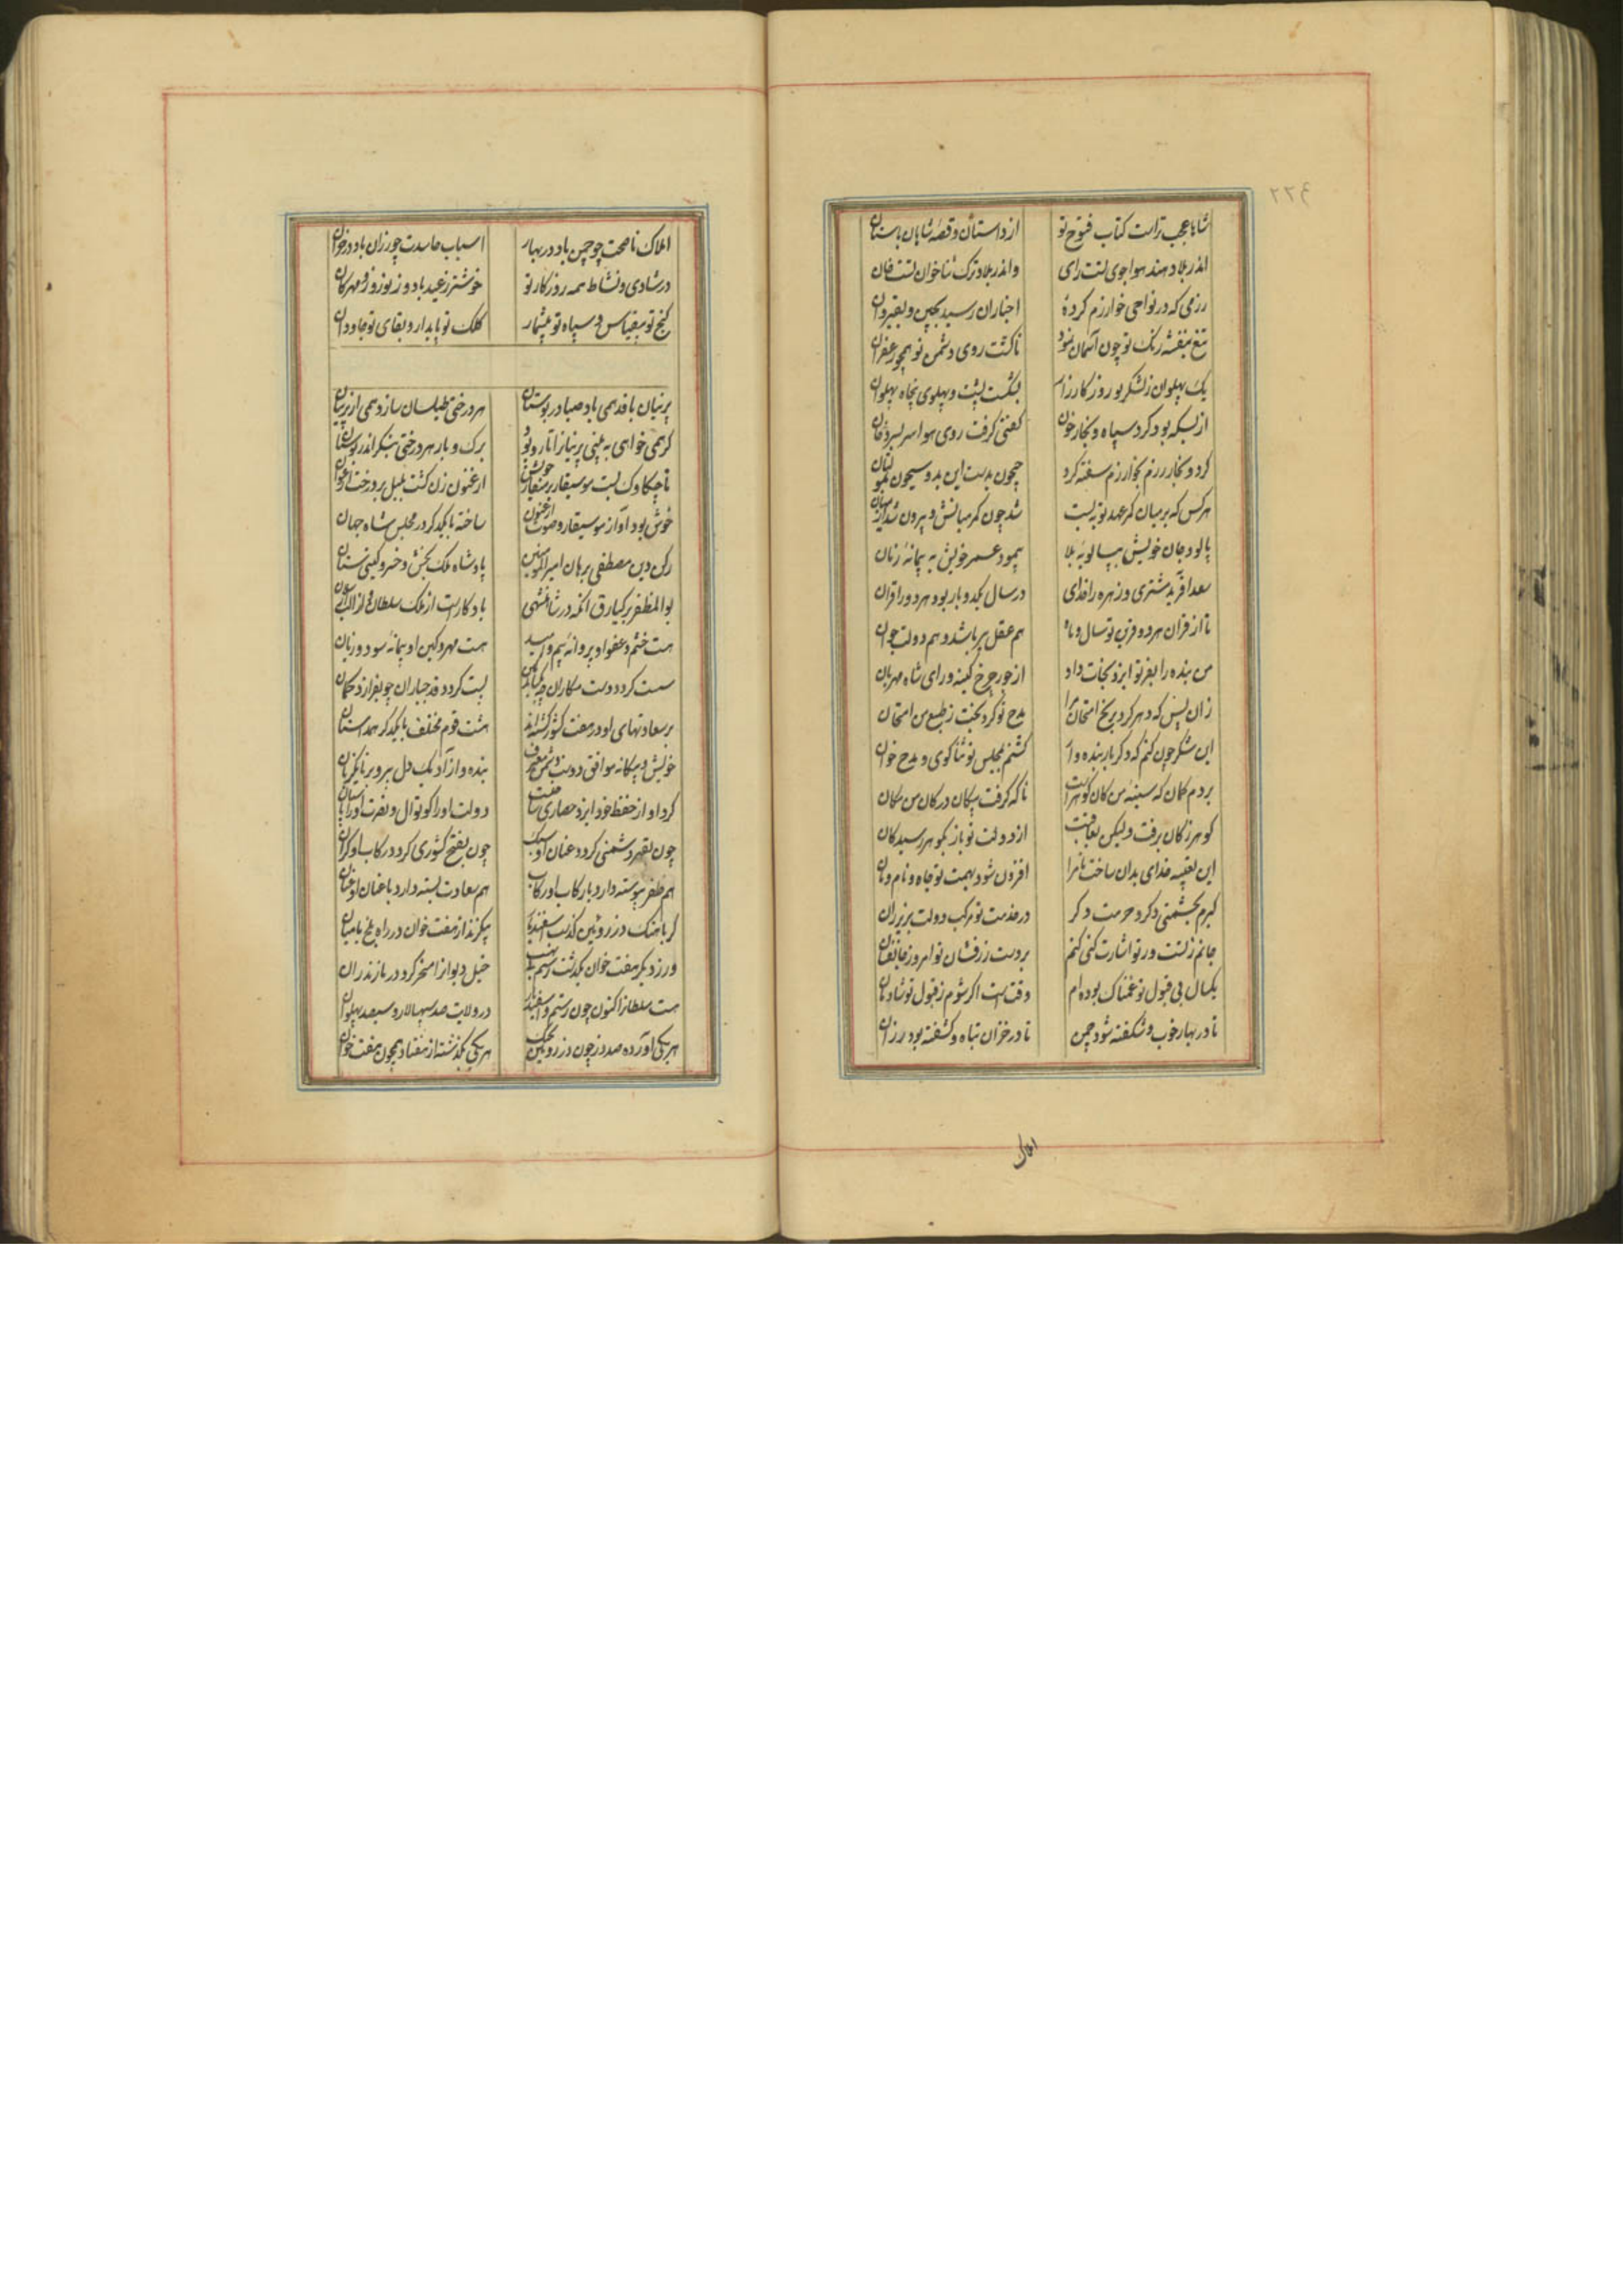 ٢٢٤
شاها عجب تراست کتاب فتوح تو از داستان و قصه شاهان باستان
اندر بلاد هند هواجوی تست رای و اندر بلاد ترک ثناخوان تست خان
رزمی که در نواحی خوارزم کردۀ اخبار آن رسید بچین و بقیروان
تیغ بنفشه رنک تو چون آسمان نمود تا کشت روی دشمن تو همچو زعفران
یک پهلوان ز لشکر تو روز کارزار بشکست پشت و پهلوی پنجاه پهلوان
از بسکه بود کرد سپاه و بخار خون کفتی گرفت روی هوا سر بسر دخان
کرد و بخار رزم بخوارزم سفته کرد جیحون بدست این بد و سیحون
هر کس که بر میان کمر عهد تو نبست شد چون کمر میانش و بیرون شد از میان
پالود جان خویش بپالونۀ بلا پیمود عمر خویش به پیمانۀ زیان
سعد آفرید مشتری و زهره را خدای در سال یکدو بار بود هر دو را قران
تا از قران هر دو قرین تو سال و ماه هم عقل پیر باشد و هم دولت جوان
من بنده را بفر تو ایزد نجات داد از جور چرخ کینه ور ای شاه مهربان
زان پس که دهر کرد برنج امتحان مرا مدح تو کرد بخت ز طبع من امتحان
این شکر چون کنم که دکر بار بنده وار کشتم بمجلس تو ثناکوی و مدح خوان
بردم کمان که سینۀ من کان کوهرست ناکه گرفت پیکان در کان من مکان
کوهر ز کان برفت ولیکن بعافیت از دولت تو باز بکوهر رسید کان
این بقیه خدای بدان ساخت تا مرا افزون شود بهمت تو جاه و نام و نان
کیرم بحشمتی دکر و حرمت دکر در خدمت تو مرکب دولت بزیر ران
جانم ز تست ور تو اشارت کنی کنم بر دست زرفشان تو امروز جانفشان
یکسال بی قبول تو غمناک بوده ام وقتست اکر شوم ز قبول تو شادمان
تا در بهار خوب و شکفته شود چمن تا در خزان تباه و کشفته بود رزان
املاک
املاک ناصحت چو چمن باد در بهار اسباب حاسدت چو رزان باد در خزان
در شادی و نشاط همه روزکار تو خوشتر ز عید باد و ز نوروز و مهرکان
کنج تو بیقیاس و سپاه تو بیشمار کلک تو پایدار و بقای تو جاودان
پرنیان بافد همی باد صبا در بوستان هر درختی طیلسان سازد همی از پرنیان
کر همی خواهی به بینی پرنیانرا تار و پود برک و بار هر درختی بنکر اندر بوستان
تا چکاوک بست موسیقار بر منقار خویش ارغنون زن کشت بلبل بر درخت ارغوان
خوش بود آواز موسیقار و صوت ارغنون ساخته با یکدکر در مجلس شاه جهان
رکن دین مصطفی برهان امیر المومنین پادشاه ملک بخش و خسرو کیتی ستان
بو المظفر برکیارق آنکه در شاهنشهی یادکارست از ملک سلطان و از الب ارسلان
هست خشم و عفو او پروانۀ بیم و امید هست مهر و کین او پیمانۀ سود و زیان
سست کردد دست مکاران چو پست کردد قد جباران چو بفرازد کمان
بر سعادتهای او در هفت کشور کشته اند هشت قوم مختلف با یکدکر همداستان
خویش و بیکانه موافق دوست و دشمن معترف بنده و آزاد یک دل پیر و برنا یکزبان
کرد او از حفظ خود ایزد حصاری ساختست دولت او را کوتوال و نصرت او را پاسبان
چون بقهر دشمنی کردد عنان او سبک چون بفتح کشوری کردد رکاب او کران
هم ظفر پیوسته دارد با رکاب او رکاب هم سعادت بسته دارد با عنان او عنان
کر باهنک دز روئین کذشت اسفندیار پیکزند از هفت خوان در راه بلخ بامیان
ور ز دیکر هفت خوان بکذشت رستم خیل دیوانرا مسخر کرد در مازندران
هست سلطانرا کنون چون رستم و اسفندیار در ولایت صد سپهسالار و سیصد پهلوان
هر یکی آورده صد دز چون دز روئین بچنک هر یکی بکذشته از هفتاد همچون هفت خوان